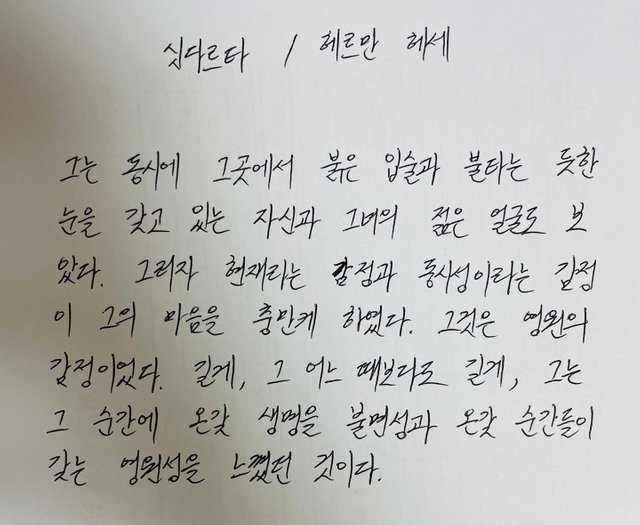 싯다르타 / 헤르만 헤세
그는 동시에 그곳에서 붉은 입술과 불타는 듯한
눈을 갖고 있는 자신과 그녀의 젊은 얼굴도 보
았다. 그러자 현재라는 감정과 동시성이라는 감정
이 그의 마음을 충만케 하였다. 그것은 영원의
감정이었다. 깊게, 그 어느 때보다도 깊게, 그는
그 순간에 온갖 생명을 불멸성과 온갖 순간들이
갖는 영원성을 느꼈던 것이다.